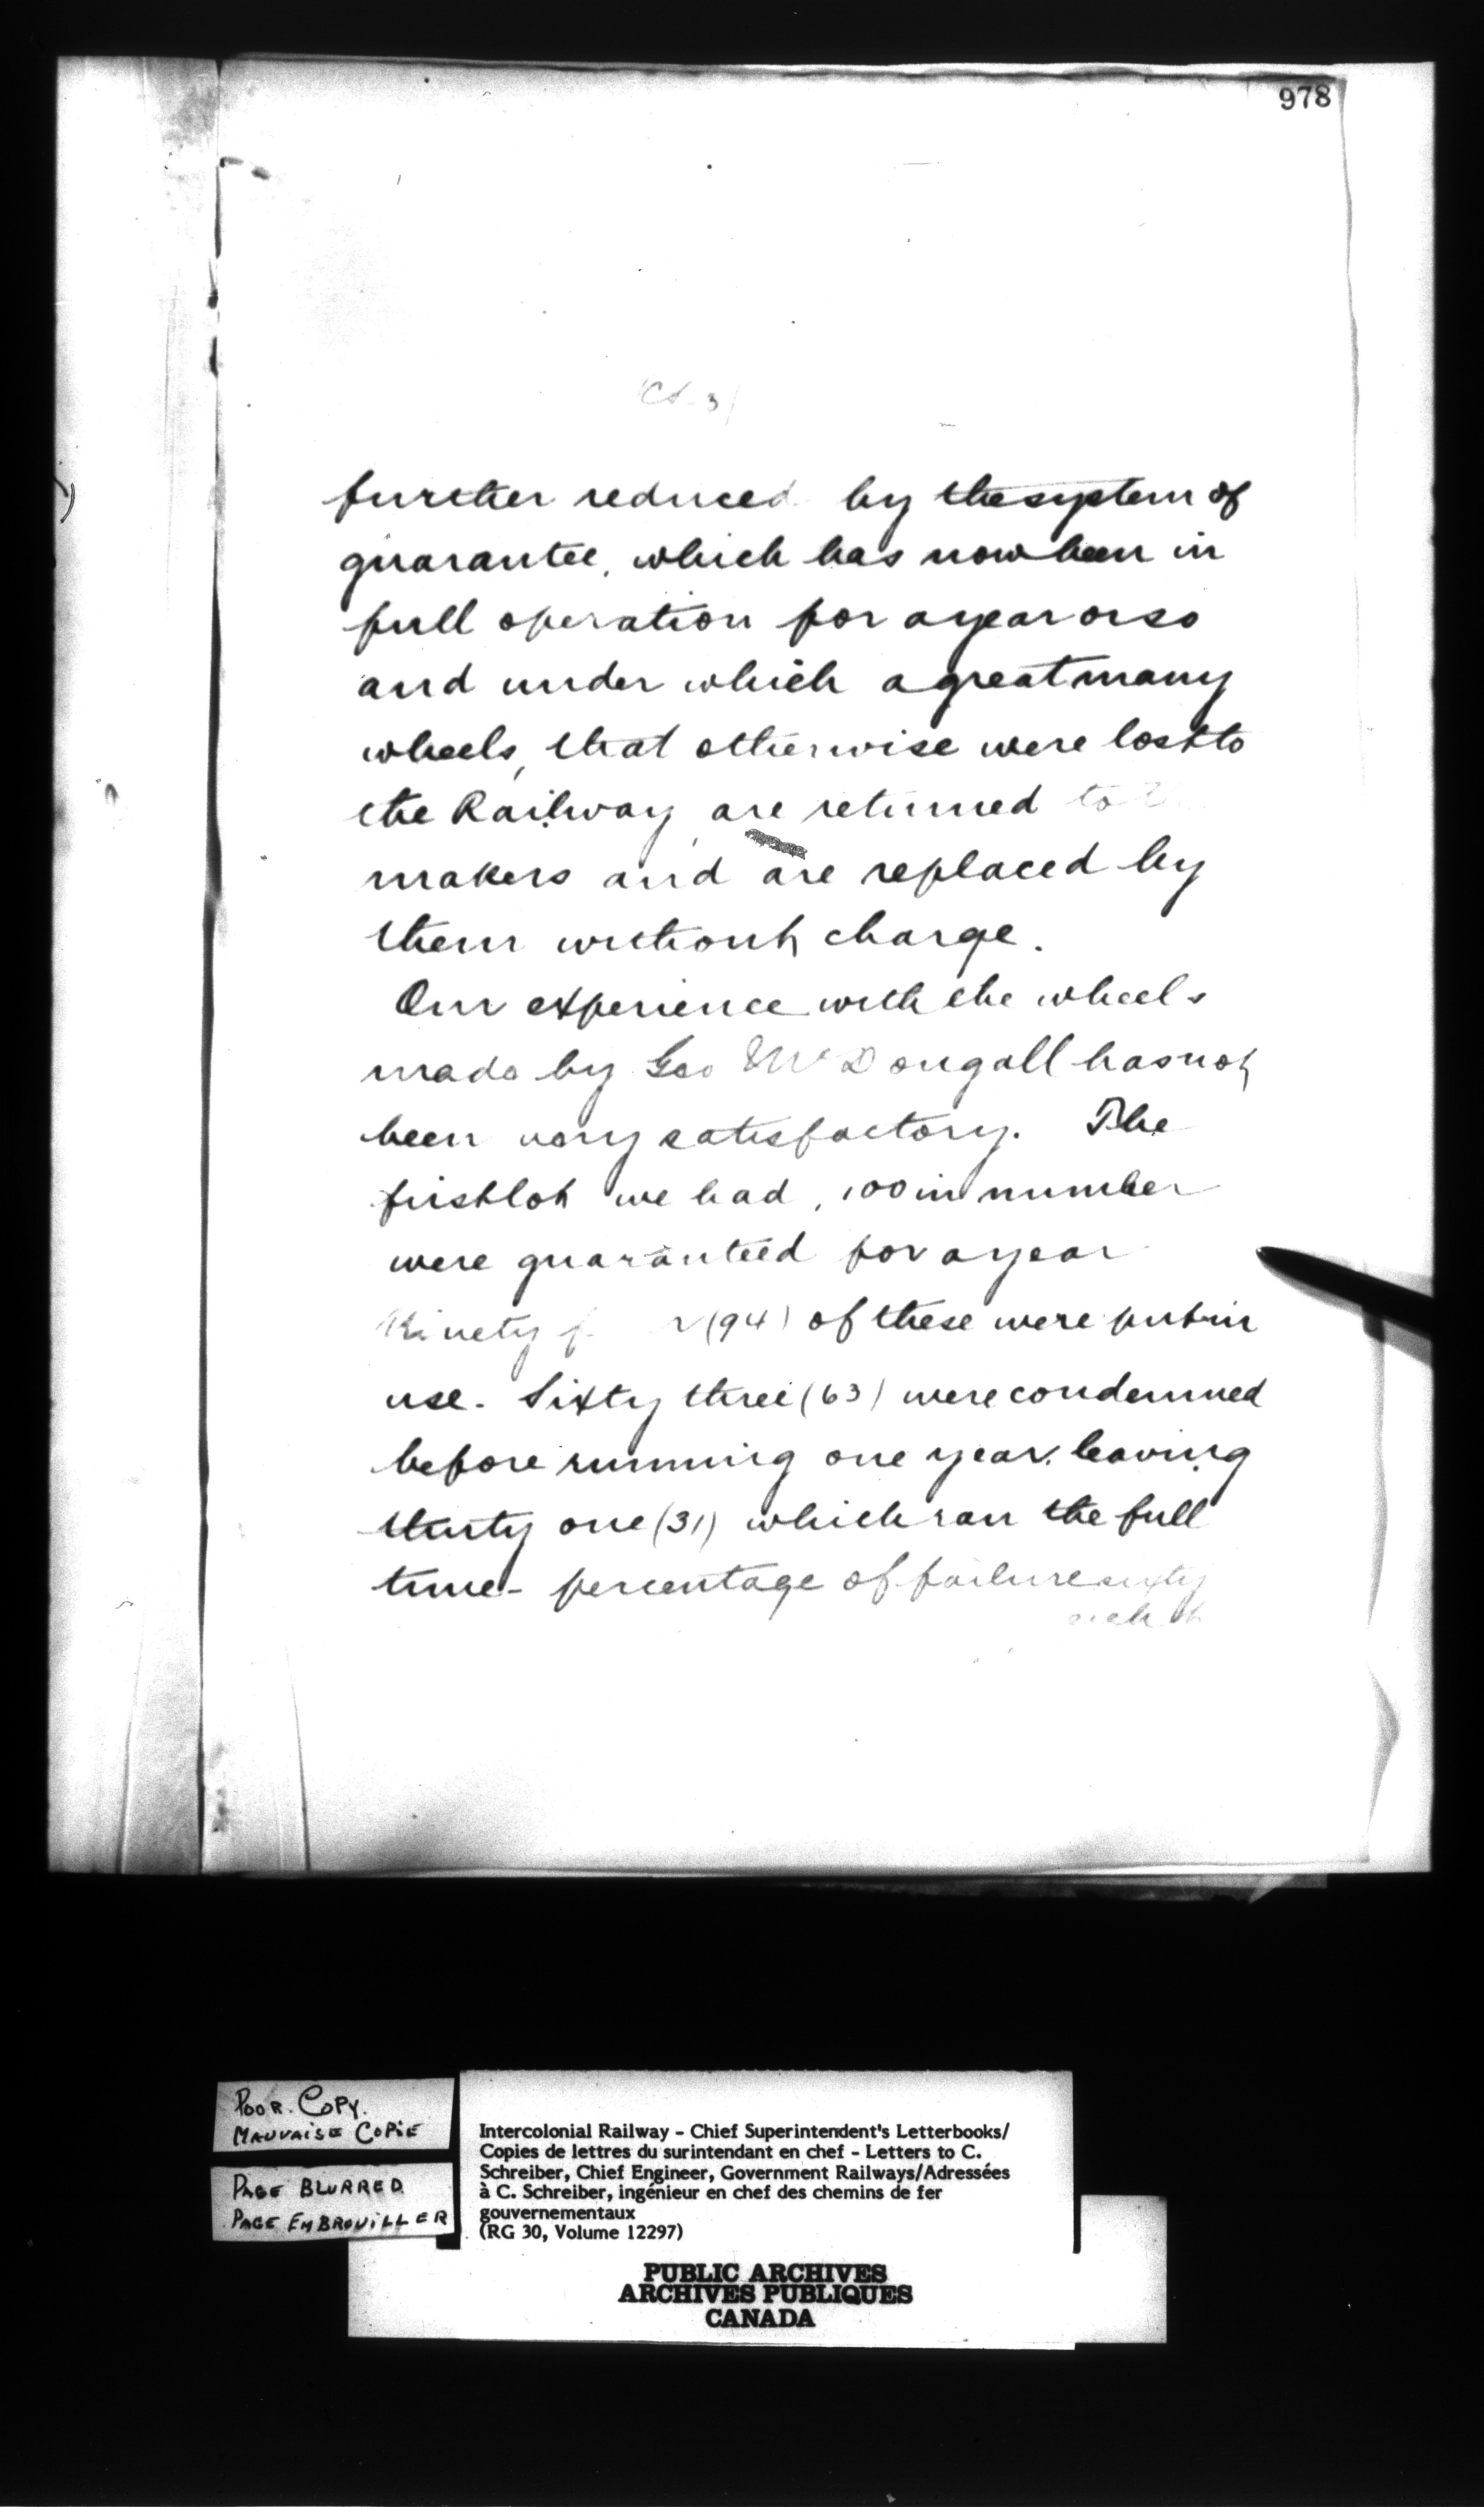 978
further reduced by the system of
guarantee, which has now been in
full operation for a year or so
and under which a great many
wheels, that otherwise were lost to
the Railway, are returned to
makers and are replaced by
them without charge.
Our experience with the wheels
made by Geo McDougall has not
been very satisfactory. The
first lot we had, 100 in number
were guaranteed for a year
Ninety (94) of these were put in
use. Sixty three (63) were condemned
before running one year, leaving
thirty one (31) which ran the full
time - percentage of failure sixty
POOR COPY.
MAUVAISE COPIE
PAGE BLURRED
PAGE EMBROUILLER
Intercolonial Railway - Chief Superintendent's Letterbooks/
Copies de lettres du surintendant en chef - Letters to C.
Schreiber, Chief Engineer, Government Railways/Adressées
à C. Schreiber, ingénieur en chef des chemins de fer
gouvernementaux
(RG 30, Volume 12297)
PUBLIC ARCHIVES
ARCHIVES PUBLIQUES
CANADA